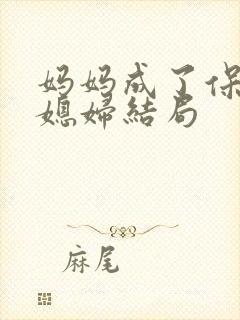 妈妈成了保
媳婦結局
麻尾